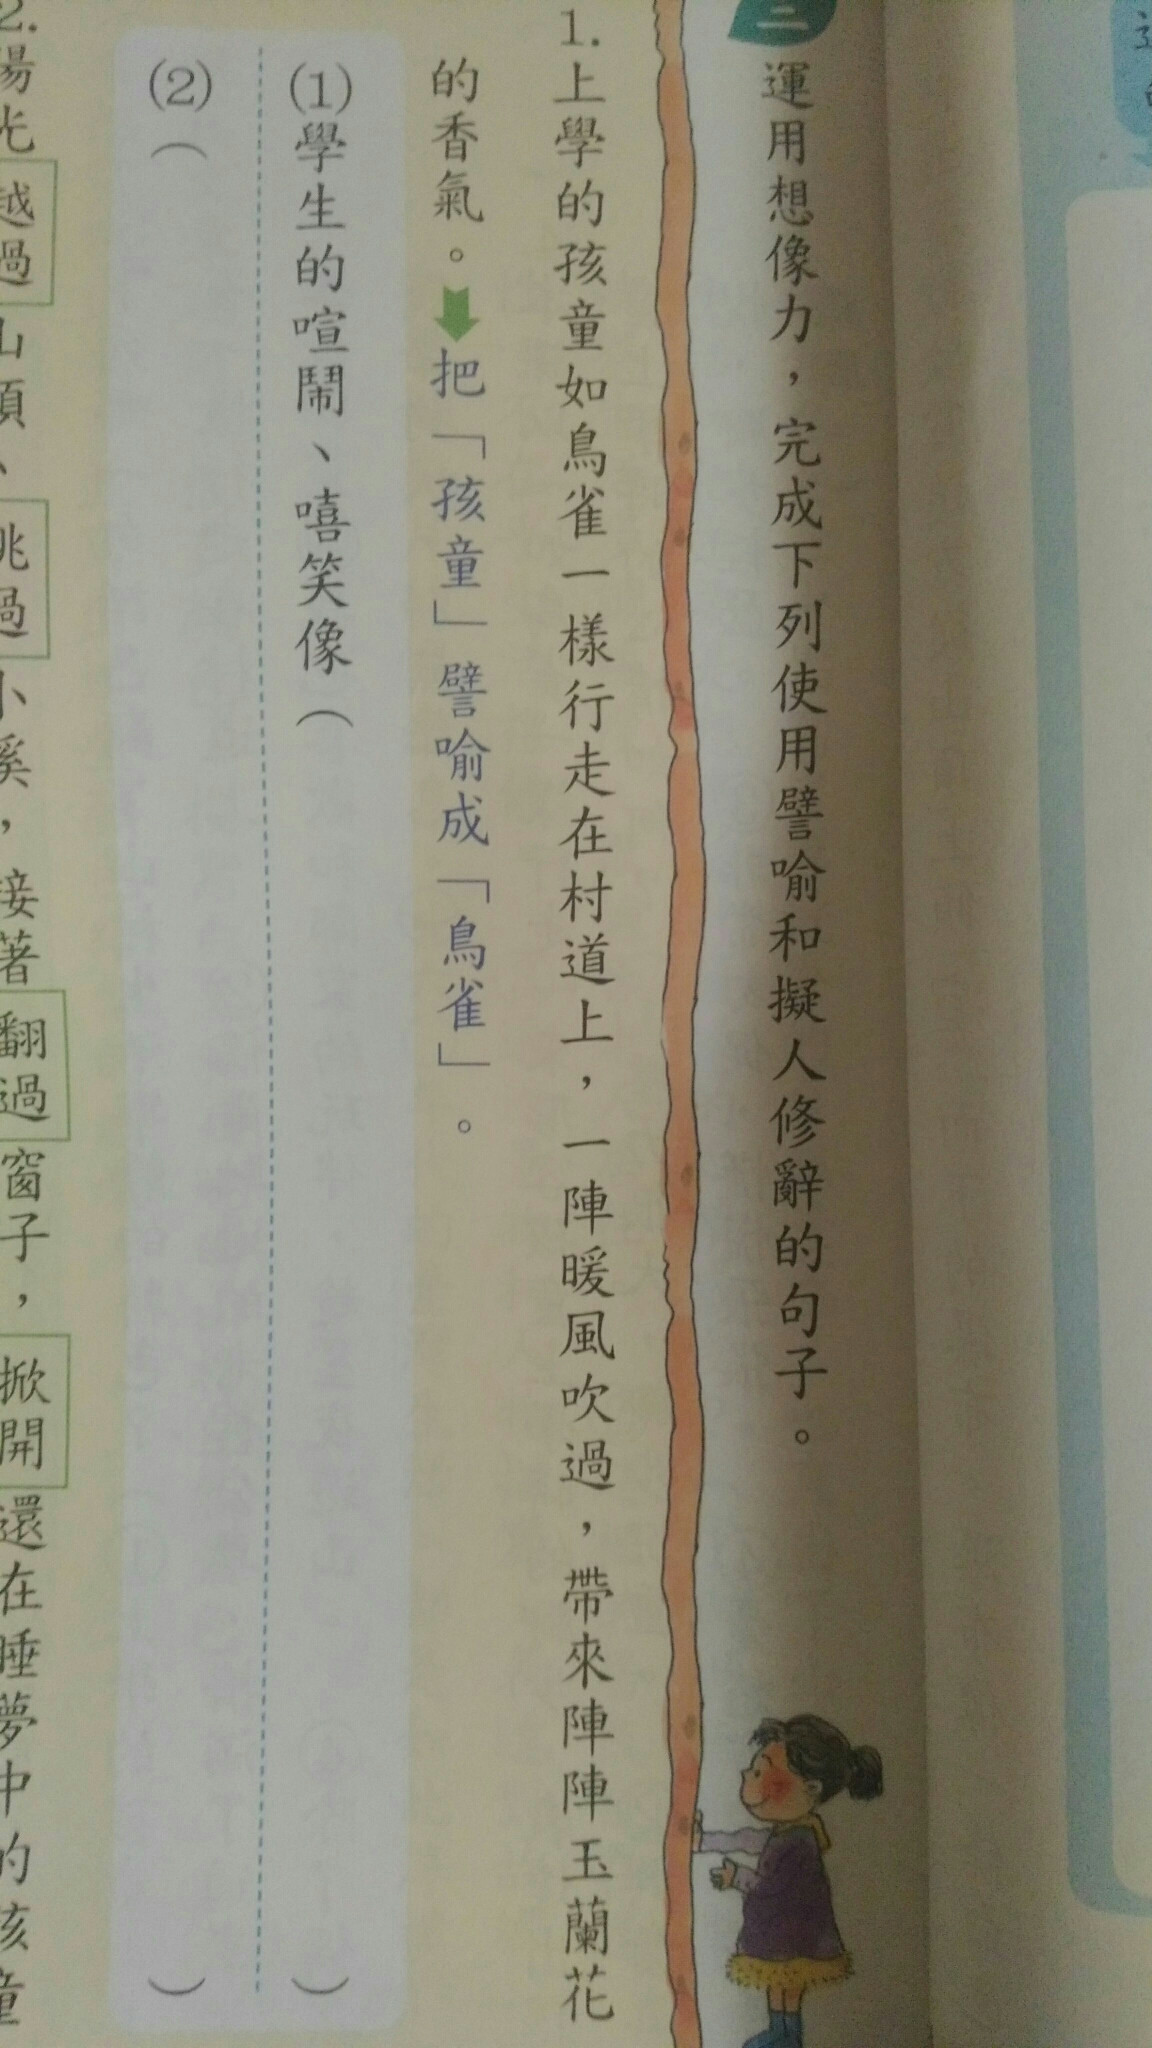 運用想像力，完成下列使用譬喻和擬人修辭的句子。
1.上學的孩童如鳥雀一樣行走在村道上，一陣暖風吹過，帶來陣陣玉蘭花
的香氣。把「孩童」譬喻成「鳥雀」。
(1)學生的喧鬧、嘻笑像（ ）
(2)（ ）
2.陽光越過山頂、跳過小溪，接著翻過窗子，掀開還在睡夢中的孩童